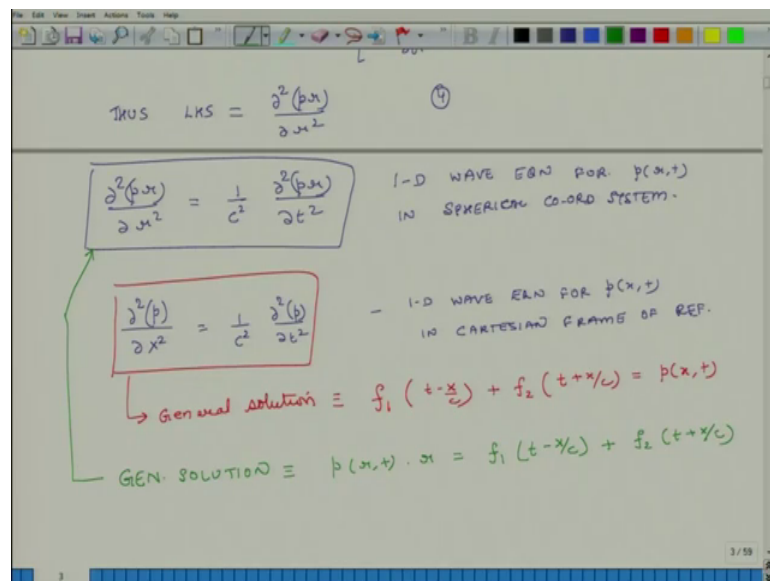 File Edit View Insert Actions Tools Help
THUS LHS = ∂²(pr)/∂r² ④
∂²(pr)/∂r² = 1/c² ∂²(pr)/∂t² 1-D WAVE EQN FOR p(r,t)
IN SPHERICAL CO-ORD SYSTEM.
∂²(p)/∂x² = 1/c² ∂²(p)/∂t² - 1-D WAVE EQN FOR p(x,t)
IN CARTESIAN FRAME OF REF.
↳ General solution ≡ f₁(t-x/c) + f₂(t+x/c) = p(x,t)
GEN. SOLUTION ≡ p(r,t) . r = f₁(t-x/c) + f₂(t+x/c)
3/59
3